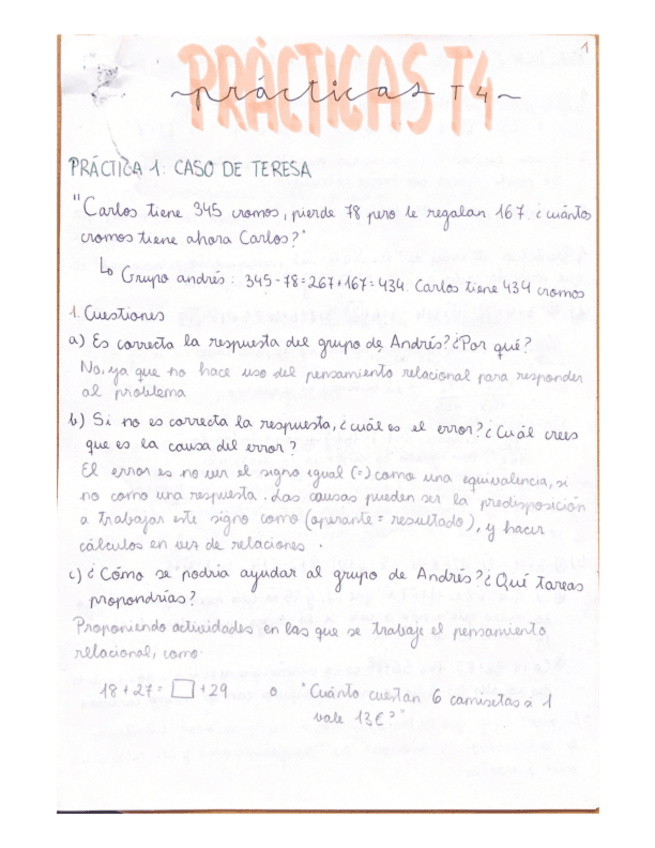 1
PRÁCTICAS T4
~prácticas T4~
PRÁCTICA 1: CASO DE TERESA
"Carlos tiene 345 cromos, pierde 78 pero le regalan 167. ¿cuántos
cromos tiene ahora Carlos?"
↳ Grupo andrés: 345-78=267+167=434. Carlos tiene 434 cromos
1. Cuestiones
a) Es correcta la respuesta del grupo de Andrés? ¿Por qué?
No, ya que no hace uso del pensamiento relacional para responder
al problema
b) Si no es correcta la respuesta, ¿cuál es el error? ¿Cuál crees
que es la causa del error?
El error es no ver el signo igual (=) como una equivalencia, si
no como una respuesta. Las causas pueden ser la predisposición
a trabajar este signo como (operante = resultado), y hacer
cálculos en vez de relaciones.
c) ¿Cómo se podría ayudar al grupo de Andrés? ¿Qué tareas
propondrías?
Proponiendo actividades en las que se trabaje el pensamiento
relacional, como.
18+27= □ +29 o "Cuánto cuestan 6 camisetas si 1
vale 13€?"